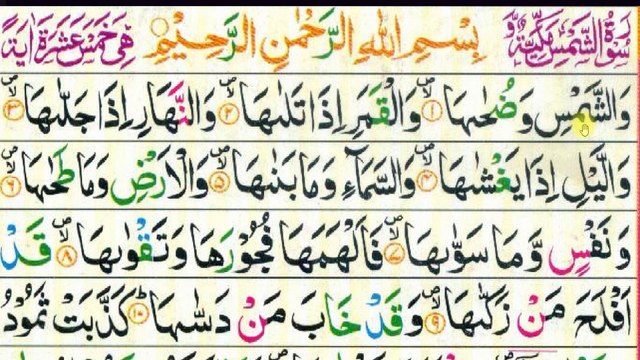 سُوْرَةُ الشَّمْسِ مَكِّيَّةٌ وَّ بِسْمِ اللهِ الرَّحْمٰنِ الرَّحِيْمِ هِيَ خَمْسَ عَشْرَةَ اٰيَةً
وَالشَّمْسِ وَضُحٰىهَا ۙ﴿۱﴾ وَالْقَمَرِ اِذَا تَلٰىهَا ۙ﴿۲﴾ وَالنَّهَارِ اِذَا جَلّٰىهَا ۙ﴿۳﴾
وَالَّيْلِ اِذَا يَغْشٰىهَا ۙ﴿۴﴾ وَالسَّمَآءِ وَمَا بَنٰىهَا ۙ﴿۵﴾ وَالْاَرْضِ وَمَا طَحٰىهَا ۙ﴿۶﴾
وَنَفْسٍ وَّمَا سَوّٰىهَا ۙ﴿۷﴾ فَاَلْهَمَهَا فُجُوْرَهَا وَتَقْوٰىهَا ۙ﴿۸﴾ قَدْ
اَفْلَحَ مَنْ زَكّٰىهَا ۙ﴿۹﴾ وَقَدْ خَابَ مَنْ دَسّٰىهَا ؕ﴿۱۰﴾ كَذَّبَتْ ثَمُوْدُ